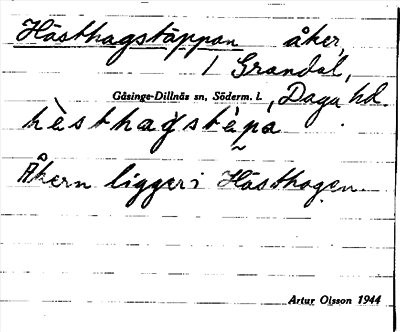 Hästhagstäppan åker,
i Grandal,
Gåsinge-Dillnäs sn, Söderm. l., Daga hd.
hèsthagstæ̀pa
Åkern ligger i Hästhagen.
Artur Olsson 1944